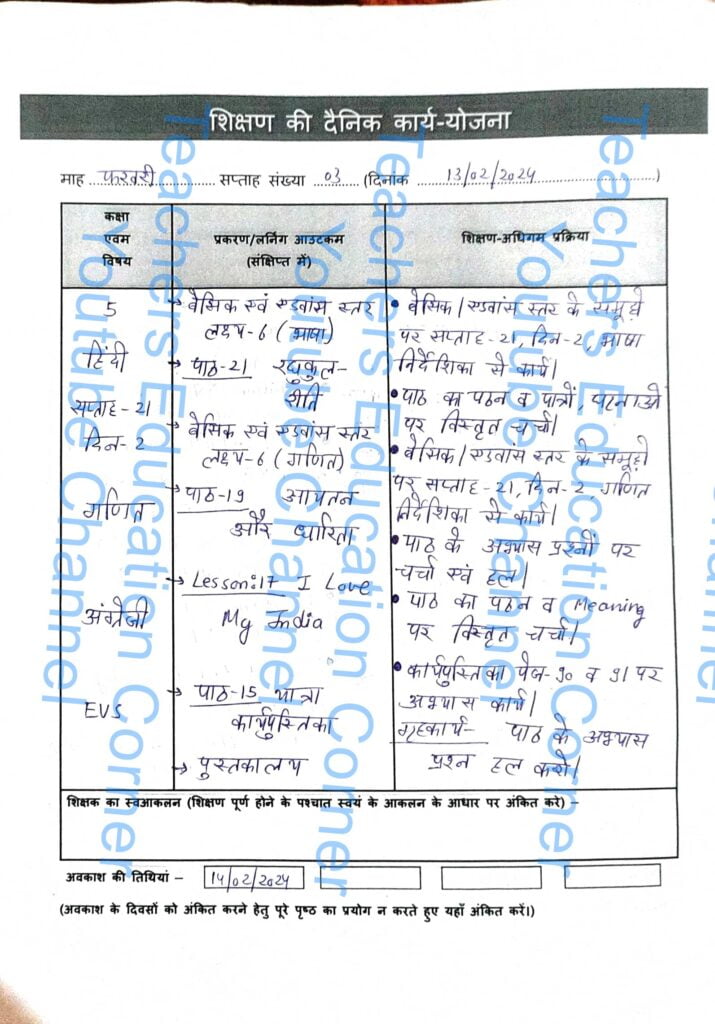 शिक्षण की दैनिक कार्य-योजना
माह फरवरी सप्ताह संख्या 03 (दिनांक 13/02/2024)
कक्षा
एवम
विषय
प्रकरण/लर्निंग आउटकम
(संक्षिप्त में)
शिक्षण-अधिगम प्रक्रिया
5
हिंदी
सप्ताह-21
दिन-2
गणित
अंग्रेजी
EVS
→ बेसिक एवं एडवांस स्तर
लक्ष्य-6 (भाषा)
→ पाठ-21 रघुकुल-
रीति
→ बेसिक एवं एडवांस स्तर
लक्ष्य-6 (गणित)
→ पाठ-19 आयतन
और धारिता
→ Lesson:17 I Love
My India
→ पाठ-15 यात्रा
कार्यपुस्तिका
→ पुस्तकालय
• बेसिक/एडवांस स्तर के समूहो
पर सप्ताह-21, दिन-2, भाषा
निर्देशिका से कार्य।
• पाठ का पठन व पात्रों, घटनाओ
पर विस्तृत चर्चा।
• बेसिक/एडवांस स्तर के समूहो
पर सप्ताह-21, दिन-2, गणित
निर्देशिका से कार्य।
• पाठ के अभ्यास प्रश्नों पर
चर्चा एवं हल।
• पाठ का पठन व Meaning
पर विस्तृत चर्चा।
• कार्यपुस्तिका पेज-90 व 91 पर
अभ्यास कार्य।
गृहकार्य- पाठ के अभ्यास
प्रश्न हल करो।
शिक्षक का स्वआकलन (शिक्षण पूर्ण होने के पश्चात स्वयं के आकलन के आधार पर अंकित करे) –
अवकाश की तिथियां – 14/02/2024
(अवकाश के दिवसों को अंकित करने हेतु पूरे पृष्ठ का प्रयोग न करते हुए यहाँ अंकित करें।)
Teachers Education Corner
Youtube Channel
Teachers Education Corner
Youtube Channel
Teachers Education Corner
Youtube Channel